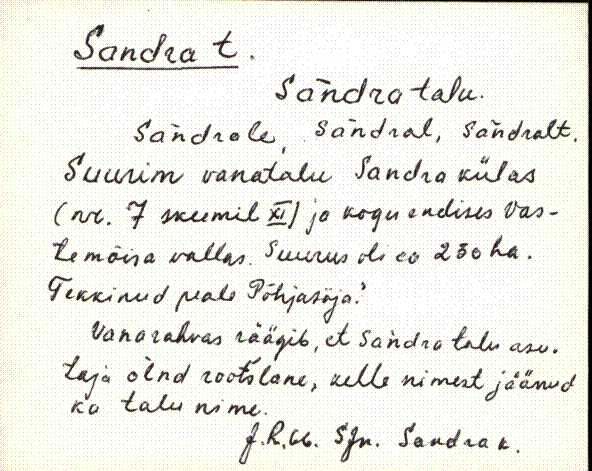 Sandra t.
Sàndra talu.
Sàndrale, Sàndral, Sàndralt.
Suurim vanatalu Sandra külas
(nr. 7 skeemil XI) ja kogu endises Vas-
temõisa vallas. Suurus oli ca 230 ha.
Tekkinud peale Põhjasõja.
Vanarahvas räägib, et Sàndra talu asu-
taja òlnd rootslane, kelle nimest jäänud
ka talu nime.
Sjn. Sandra k.